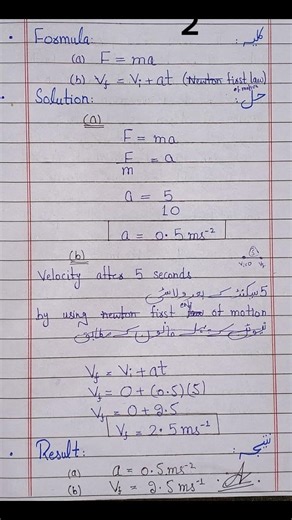 2
• Formula: کلیہ:
(a) F = ma
(b) Vf = Vi + at (Newton first law)
of motion
• Solution: حل:
(a)
F = ma
F/m = a
a = 5/10
a = 0.5 ms⁻²
(b)
Vi=0 Vf
Velocity after 5 seconds
5 سیکنڈ کے بعد ولاسٹی
by using newton first eq of motion
Vf = Vi + at
Vf = 0 + (0.5)(5)
Vf = 0 + 2.5
Vf = 2.5 ms⁻¹
• Result: نتیجہ:
(a) a = 0.5 ms⁻²
(b) Vf = 2.5 ms⁻¹